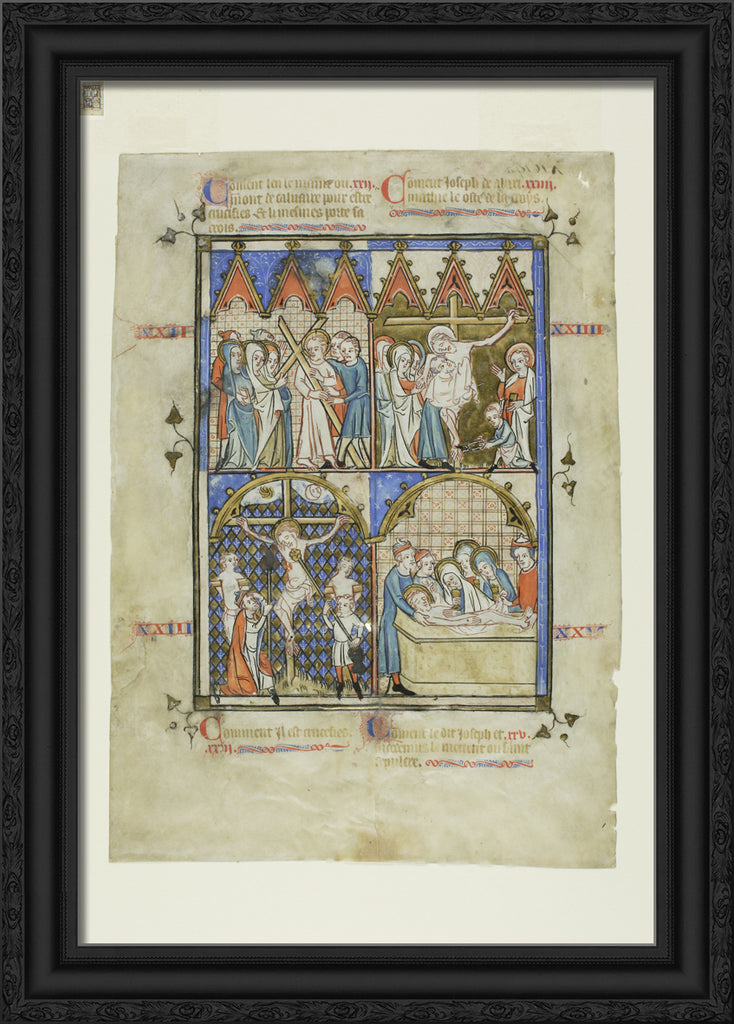 Coment len le maine ou .xxii.
mont de caluaire pour estre
crucifies. Et li mesmes porte sa
crois.
Coment Joseph de .xxiiii.
mathie le oste de la croys.
XXII
XXIIII
XXIII
XXV
Comment Il est crucefies.
.xxiii.
Coment le dit Joseph et .xxv.
le metent ou saint
sepulcre.